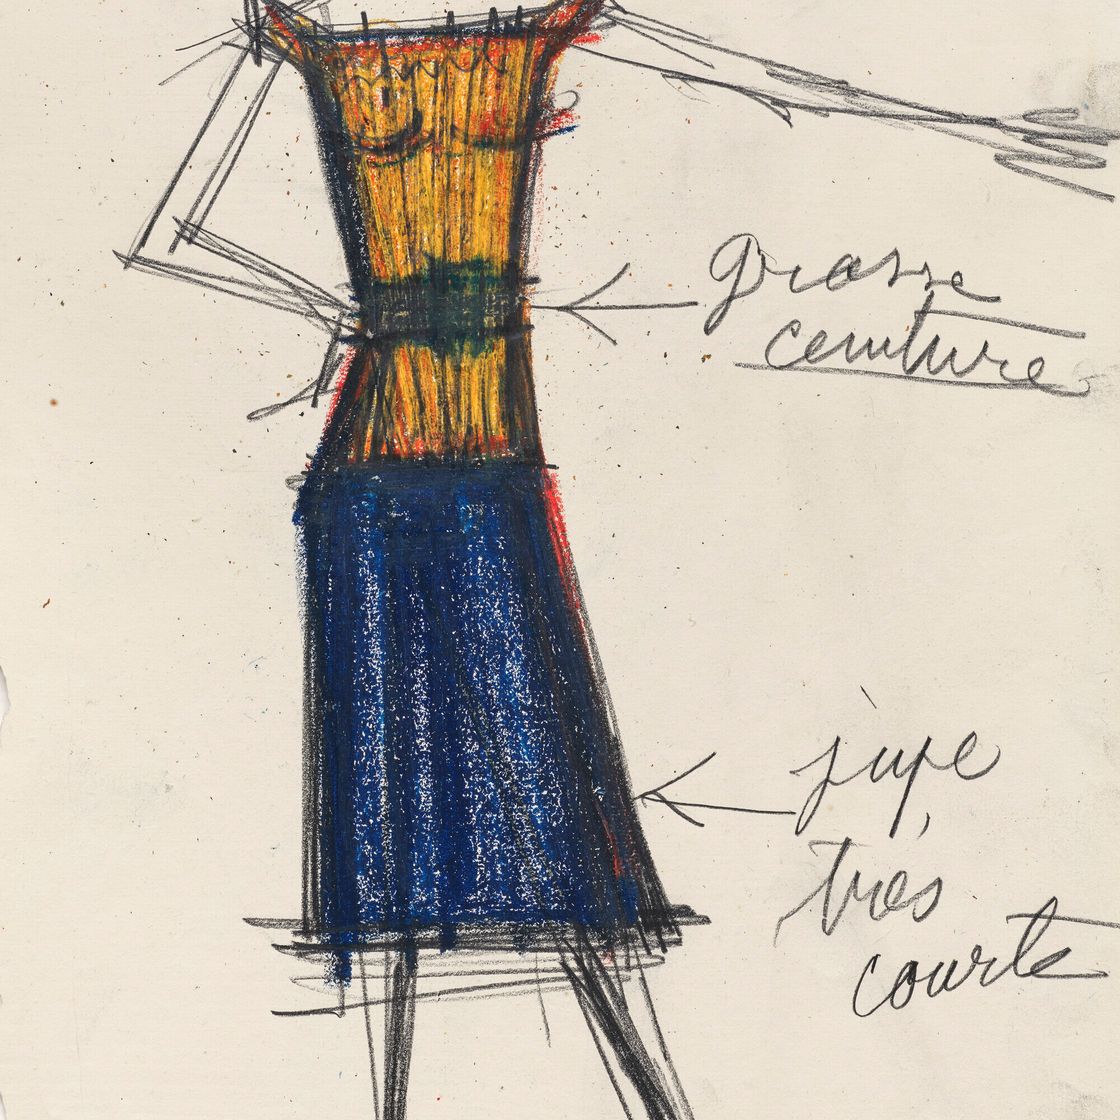 grosse
ceinture
jupe
très
courte